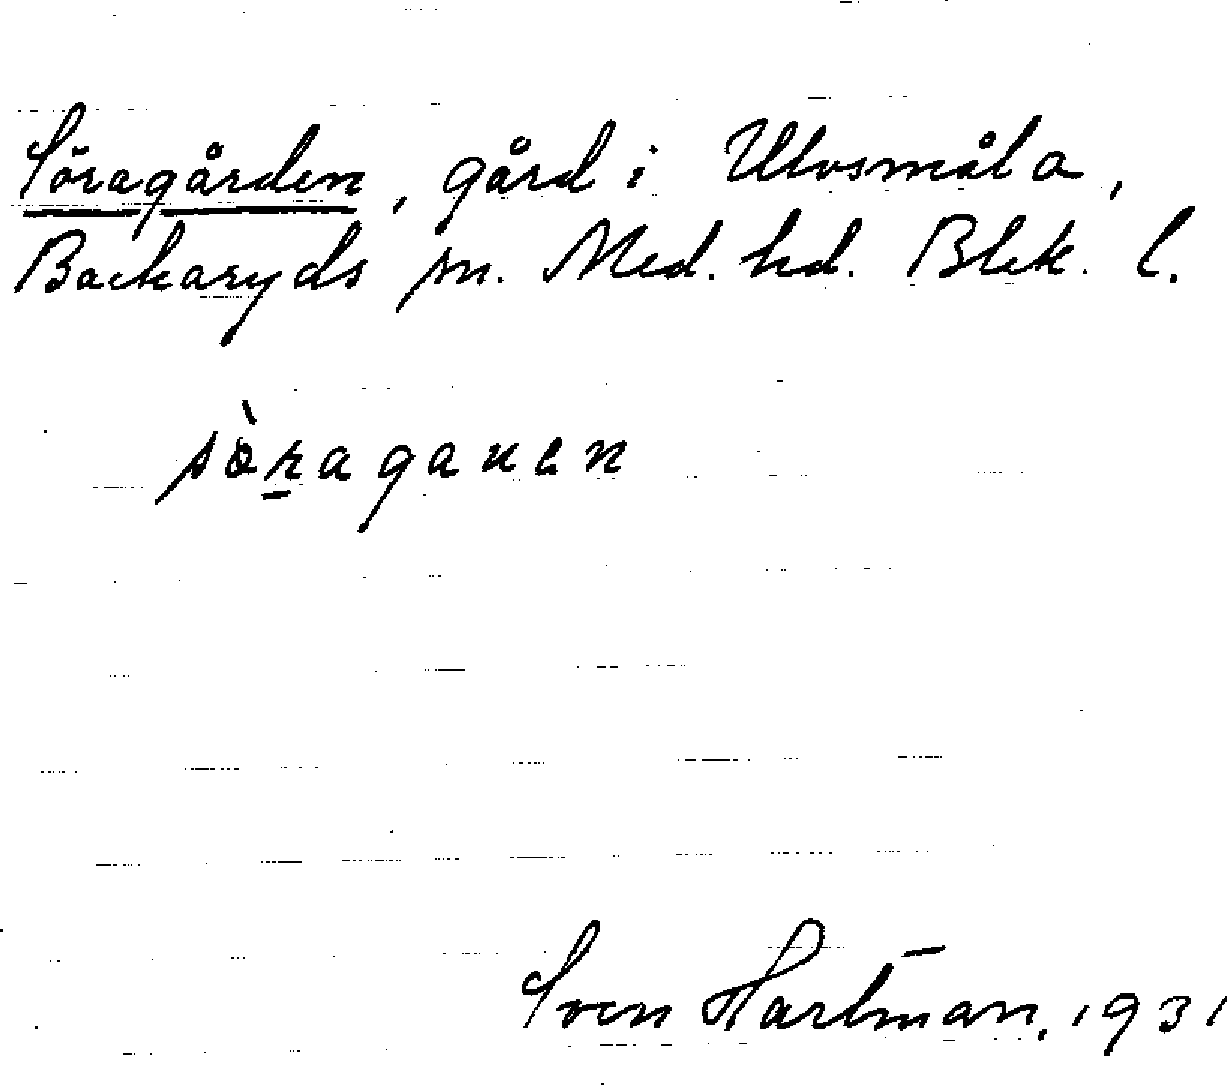 Söragården, gård i Ulvsmåla,
Backaryds sn. Med. hd. Blek. l.
sòraganen
Sven Hartman, 1931